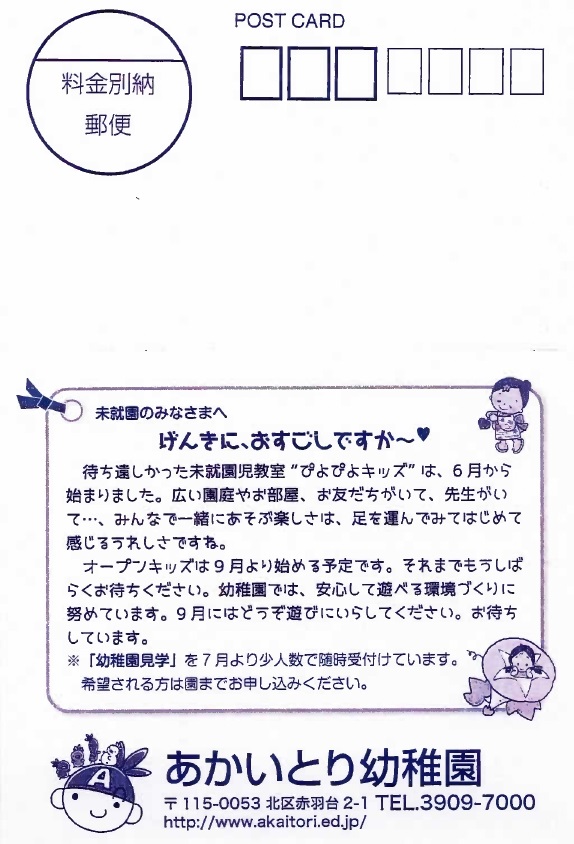 POST CARD
料金別納
郵便
未就園のみなさまへ
げんきに、おすごしですか〜♥
待ち遠しかった未就園児教室“ぴよぴよキッズ”は、６月から
始まりました。広い園庭やお部屋、お友だちがいて、先生がい
て…、みんなで一緒にあそぶ楽しさは、足を運んでみてはじめて
感じるうれしさですね。
オープンキッズは９月より始める予定です。それまでもうしば
らくお待ちください。幼稚園では、安心して遊べる環境づくりに
努めています。９月にはどうぞ遊びにいらしてください。お待ち
しています。
※「幼稚園見学」を７月より少人数で随時受付けています。
希望される方は園までお申し込みください。
A
あかいとり幼稚園
〒115-0053 北区赤羽台 2-1 TEL.3909-7000
http://www.akaitori.ed.jp/